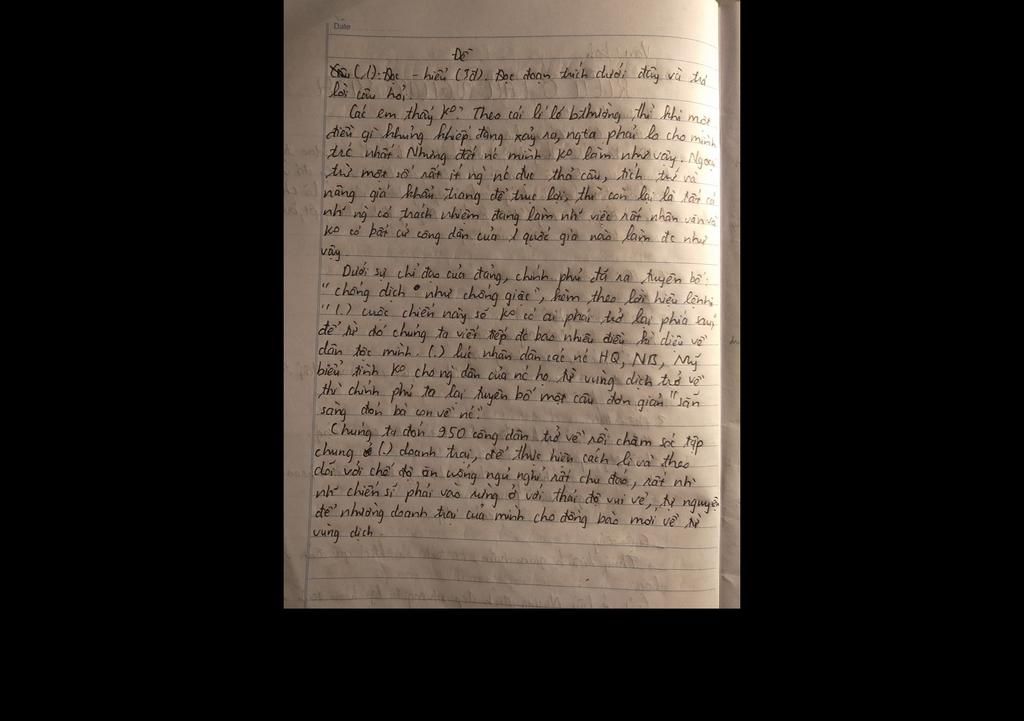 Date
Đề
Câu (1): Đọc - hiểu (3đ). Đọc đoạn trích dưới đây và trả
lời câu hỏi.
Các em thấy k°? Theo cái lí lẽ bthường thì khi một
điều gì khủng khiếp đang xảy ra, ngta phải lo cho mình
trc nhất. Nhưng đất nc mình k° làm như vậy. Ngoại
trừ một số rất ít ng nc đục thả câu, tích trữ và
nâng giá khẩu trang để trục lợi, thì còn lại là tất cả
nh~ ng có trách nhiệm đang làm nh~ việc rất nhân văn mà
k° có bất cứ công dân của 1 quốc gia nào làm đc như
vậy.
Dưới sự chỉ đạo của đảng, chính phủ đã ra tuyên bố:
"chống dịch như chống giặc", kèm theo lời hiệu lệnh:
"(.) cuộc chiến này sẽ k° có ai phải trở lại phía sau",
để từ đó chúng ta viết tiếp đc bao nhiêu điều kì diệu về
dân tộc mình. (.) lúc nhân dân các nc HQ, NB, Mỹ
biểu tình k° cho ng dân của nc họ từ vùng dịch trở về
thì chính phủ ta lại tuyên bố một câu đơn giản "sẵn
sàng đón bà con về nc".
Chúng ta đón 950 công dân trở về rồi chăm sóc tập
chung ở (.) doanh trại, để thực hiện cách li và theo
dõi với chế độ ăn uống ngủ nghỉ rất chu đáo, rất nh`
nh~ chiến sĩ phải vào rừng ở với thái độ vui vẻ, tự nguyện
để nhường doanh trại của mình cho đồng bào mới về từ
vùng dịch.